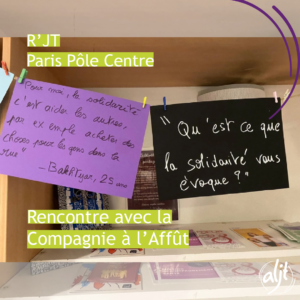 R'JT
Paris Pôle Centre
"Pour moi, la solidarité
c'est aider les autres
par exemple acheter des
choses pour les gens dans la
rue"
- Bakhtyar, 25 ans
"Qu'est ce que
la solidarité vous
évoque ?"
Rencontre avec la
Compagnie à l'Affût
aljt